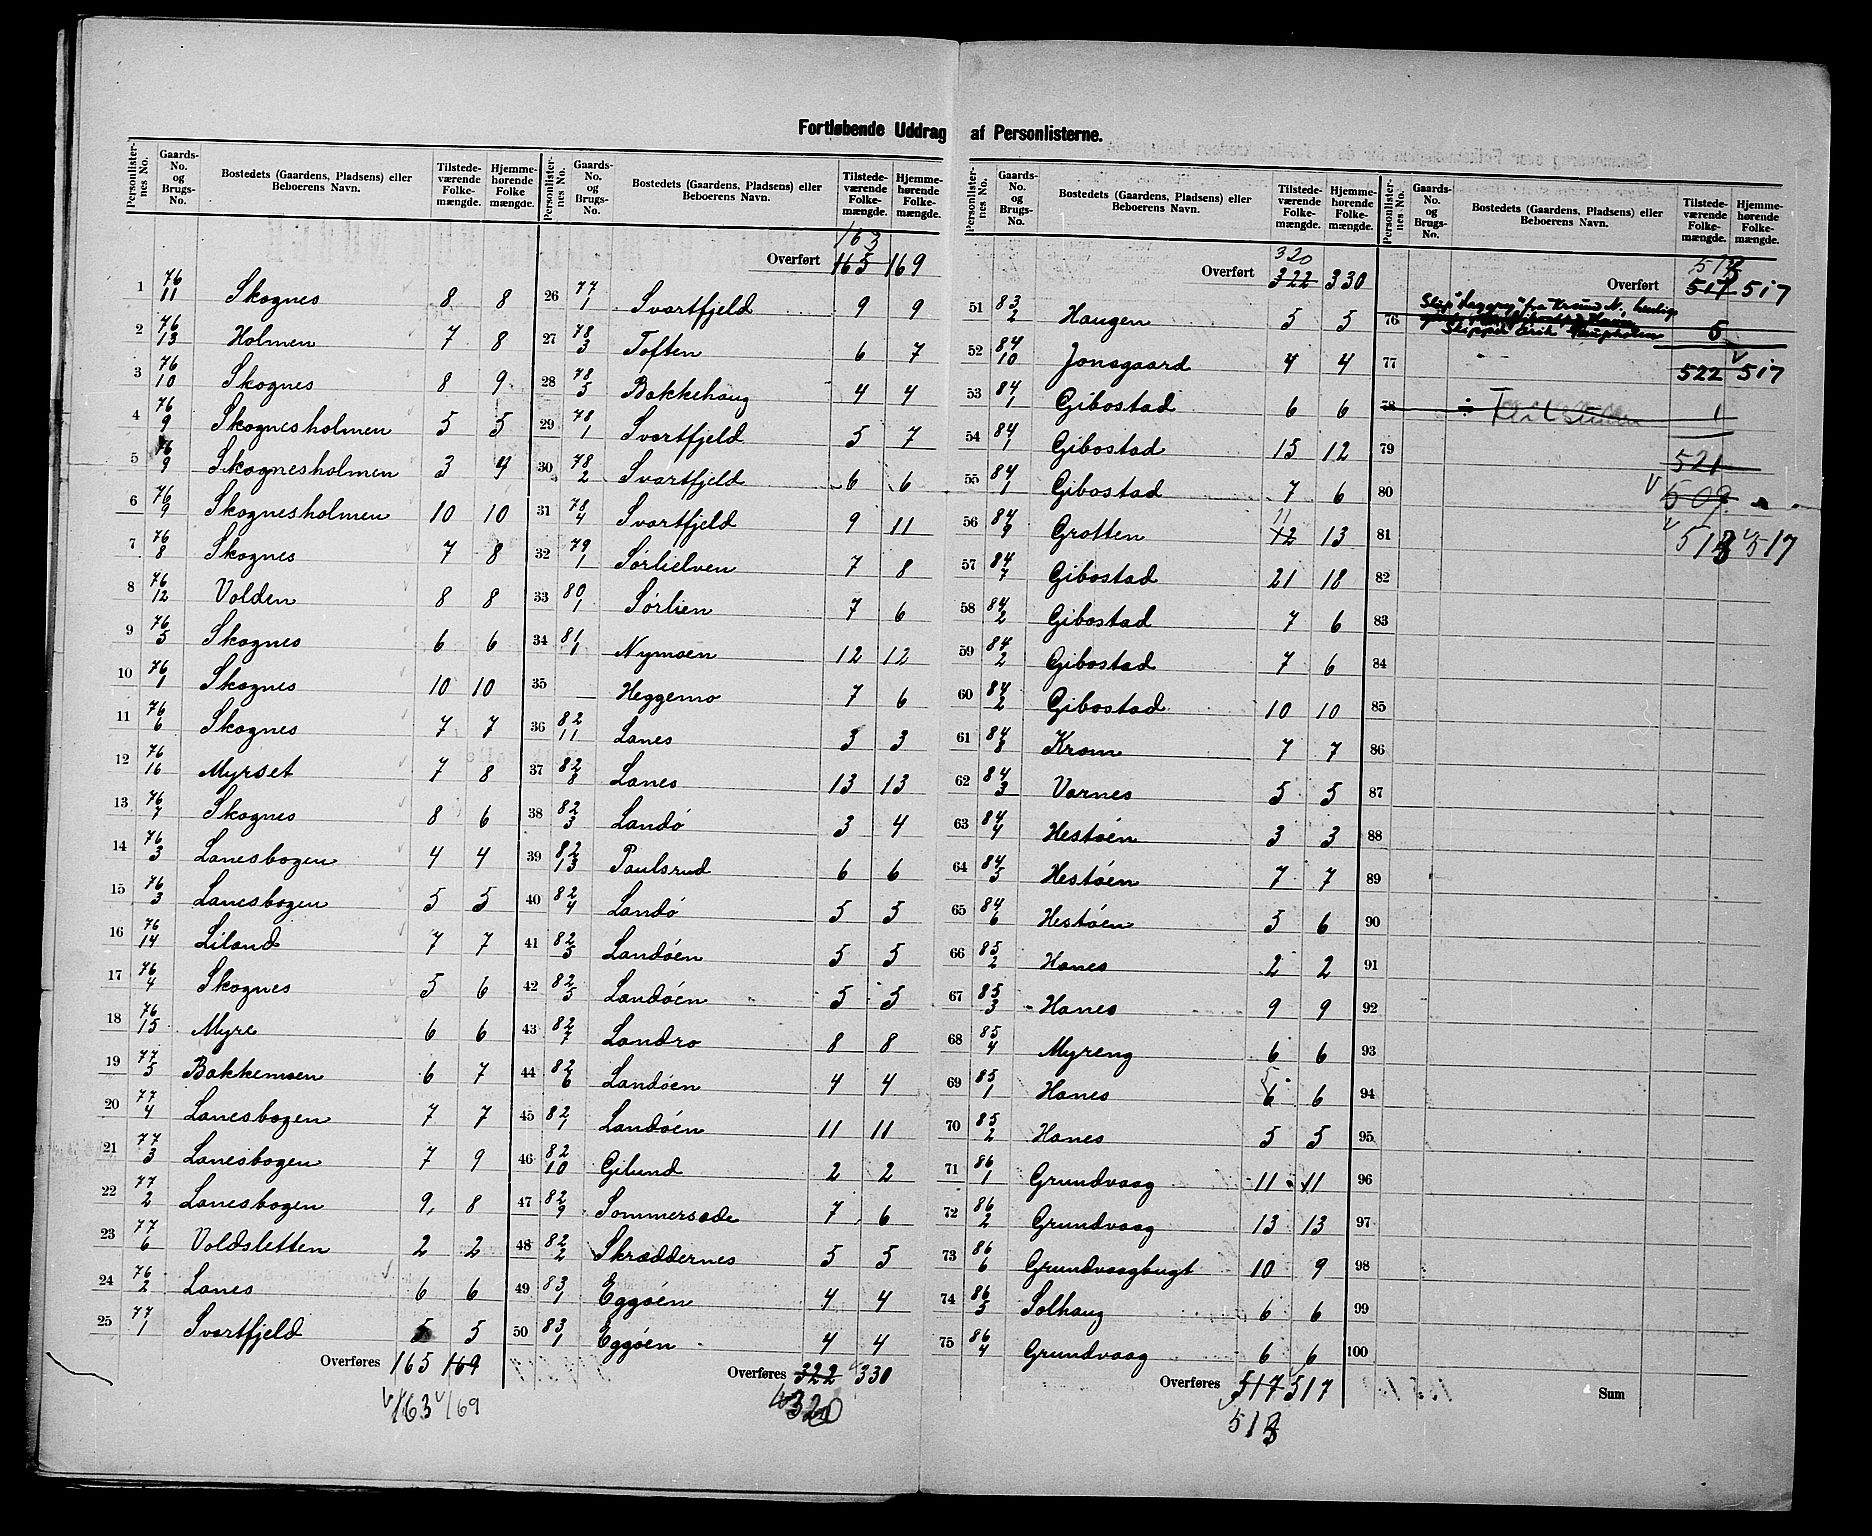 Fortløbende Uddrag af Personlisterne.
Personlister-nes No. | Gaards-No. og Brugs-No. | Bostedets (Gaardens, Pladsens) eller Beboerens Navn. | Tilstede-værende Folke-mængde. | Hjemme-hørende Folke mængde.
1 76/11 Skognes 8 8
2 76/13 Holmen 7 8
3 76/10 Skognes 8 9
4 76/9 Skognesholmen 5 5
5 76/9 Skognesholmen 3 4
6 76/9 Skognesholmen 10 10
7 76/8 Skognes 7 8
8 76/12 Volden 8 8
9 76/5 Skognes 6 6
10 76/1 Skognes 10 10
11 76/6 Skognes 7 7
12 76/16 Myrset 7 8
13 76/7 Skognes 8 6
14 76/3 Lanesbogen 4 4
15 76/3 Lanesbogen 5 5
16 76/14 Liland 7 7
17 76/4 Skognes 5 6
18 76/15 Myre 6 6
19 77/5 Bakkemoen 6 7
20 77/4 Lanesbogen 7 7
21 77/3 Lanesbogen 7 9
22 77/2 Lanesbogen 9 8
23 77/6 Voldsletten 2 2
24 76/2 Lanes 6 6
25 77/1 Svartfjeld 5 5
Overføres 165 169
163 169
Personlister-nes No. | Gaards-No. og Brugs-No. | Bostedets (Gaardens, Pladsens) eller Beboerens Navn. | Tilstede-værende Folke-mængde. | Hjemme-hørende Folke-mængde.
163
Overført 165 169
26 77/1 Svartfjeld 9 9
27 78/3 Toften 6 7
28 78/5 Bakkehaug 4 4
29 78/1 Svartfjeld 5 7
30 78/2 Svartfjeld 6 6
31 78/4 Svartfjeld 9 11
32 79/1 Sørlielven 7 8
33 80/1 Sørlien 7 6
34 81/1 Nymoen 12 12
35 — Heggemo 7 6
36 82/11 Lanes 3 3
37 82/8 Lanes 13 13
38 82/3 Landø 3 4
39 82/13 Paulsrud 6 6
40 82/4 Landø 5 5
41 82/5 Landøen 5 5
42 82/5 Landøen 5 5
43 82/7 Landro 8 8
44 82/6 Landøen 4 4
45 82/1 Landøen 11 11
46 82/10 Gilund 2 2
47 82/9 Sommersæde 7 6
48 82/2 Skræddernes 5 5
49 83/1 Eggøen 4 4
50 83/1 Eggøen 4 4
Overføres 322 330
320
Personlister-nes No. | Gaards-No. og Brugs-No. | Bostedets (Gaardens, Pladsens) eller Beboerens Navn. | Tilstede-værende Folke-mængde. | Hjemme-hørende Folke-mængde.
320
Overført 322 330
51 83/2 Haugen 5 5
52 84/10 Jonsgaard 4 4
53 84/1 Gibostad 6 6
54 84/1 Gibostad 15 12
55 84/1 Gibostad 7 6
11
56 84/9 Grotten 12 13
57 84/7 Gibostad 21 18
58 84/2 Gibostad 7 6
59 84/2 Gibostad 7 6
60 84/2 Gibostad 10 10
61 84/8 Krom 7 7
62 84/3 Varnes 5 5
63 84/4 Hestøen 3 3
64 84/5 Hestøen 7 7
65 84/6 Hestøen 5 6
66 85/2 Hanes 2 2
67 85/3 Hanes 9 9
68 85/4 Myreng 6 6
5
69 85/1 Hanes 6 6
70 85/2 Hanes 5 5
71 86/1 Grundvaag 11 11
72 86/2 Grundvaag 13 13
73 86/6 Grundvaagbugt 10 9
74 86/5 Solhaug 6 6
75 86/4 Grundvaag 6 6
Overføres 517 517
513
Personlister-nes No. | Gaards-No. og Brugs-No. | Bostedets (Gaardens, Pladsens) eller Beboerens Navn. | Tilstede-værende Folke-mængde. | Hjemme-hørende Folke-mængde.
513
Overført 517 517
fra
76 Skipper Erik 5
77 522 517
78 1
79 521
80 509
81 513 517
82
83
84
85
86
87
88
89
90
91
92
93
94
95
96
97
98
99
100
Sum